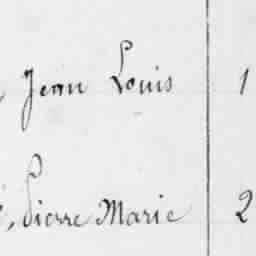 , Jean Louis 1
, Pierre Marie 2